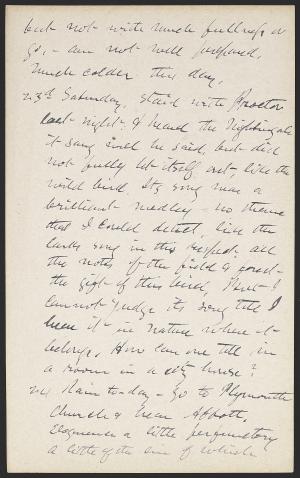 but not with much fullness or
go, - am not well prepared.
Much colder this day.
23d Saturday, staid with Proctor
last night; I heard the Nightingale
it sang well he said, but did
not fully let itself out, like the
wild bird. Its song was a
brilliant medley - no theme
that I could detect, like the
larks song in this respect; all
the notes of the field & forest
the gift of this bird, but I
cannot judge its song till I
hear it in nature where it
belongs. How can one tell in
a room in a city house?
24 Rain to-day - go to Plymouth
Church & hear Abbott,
eloquence a little perfunctory
a little of the air of which